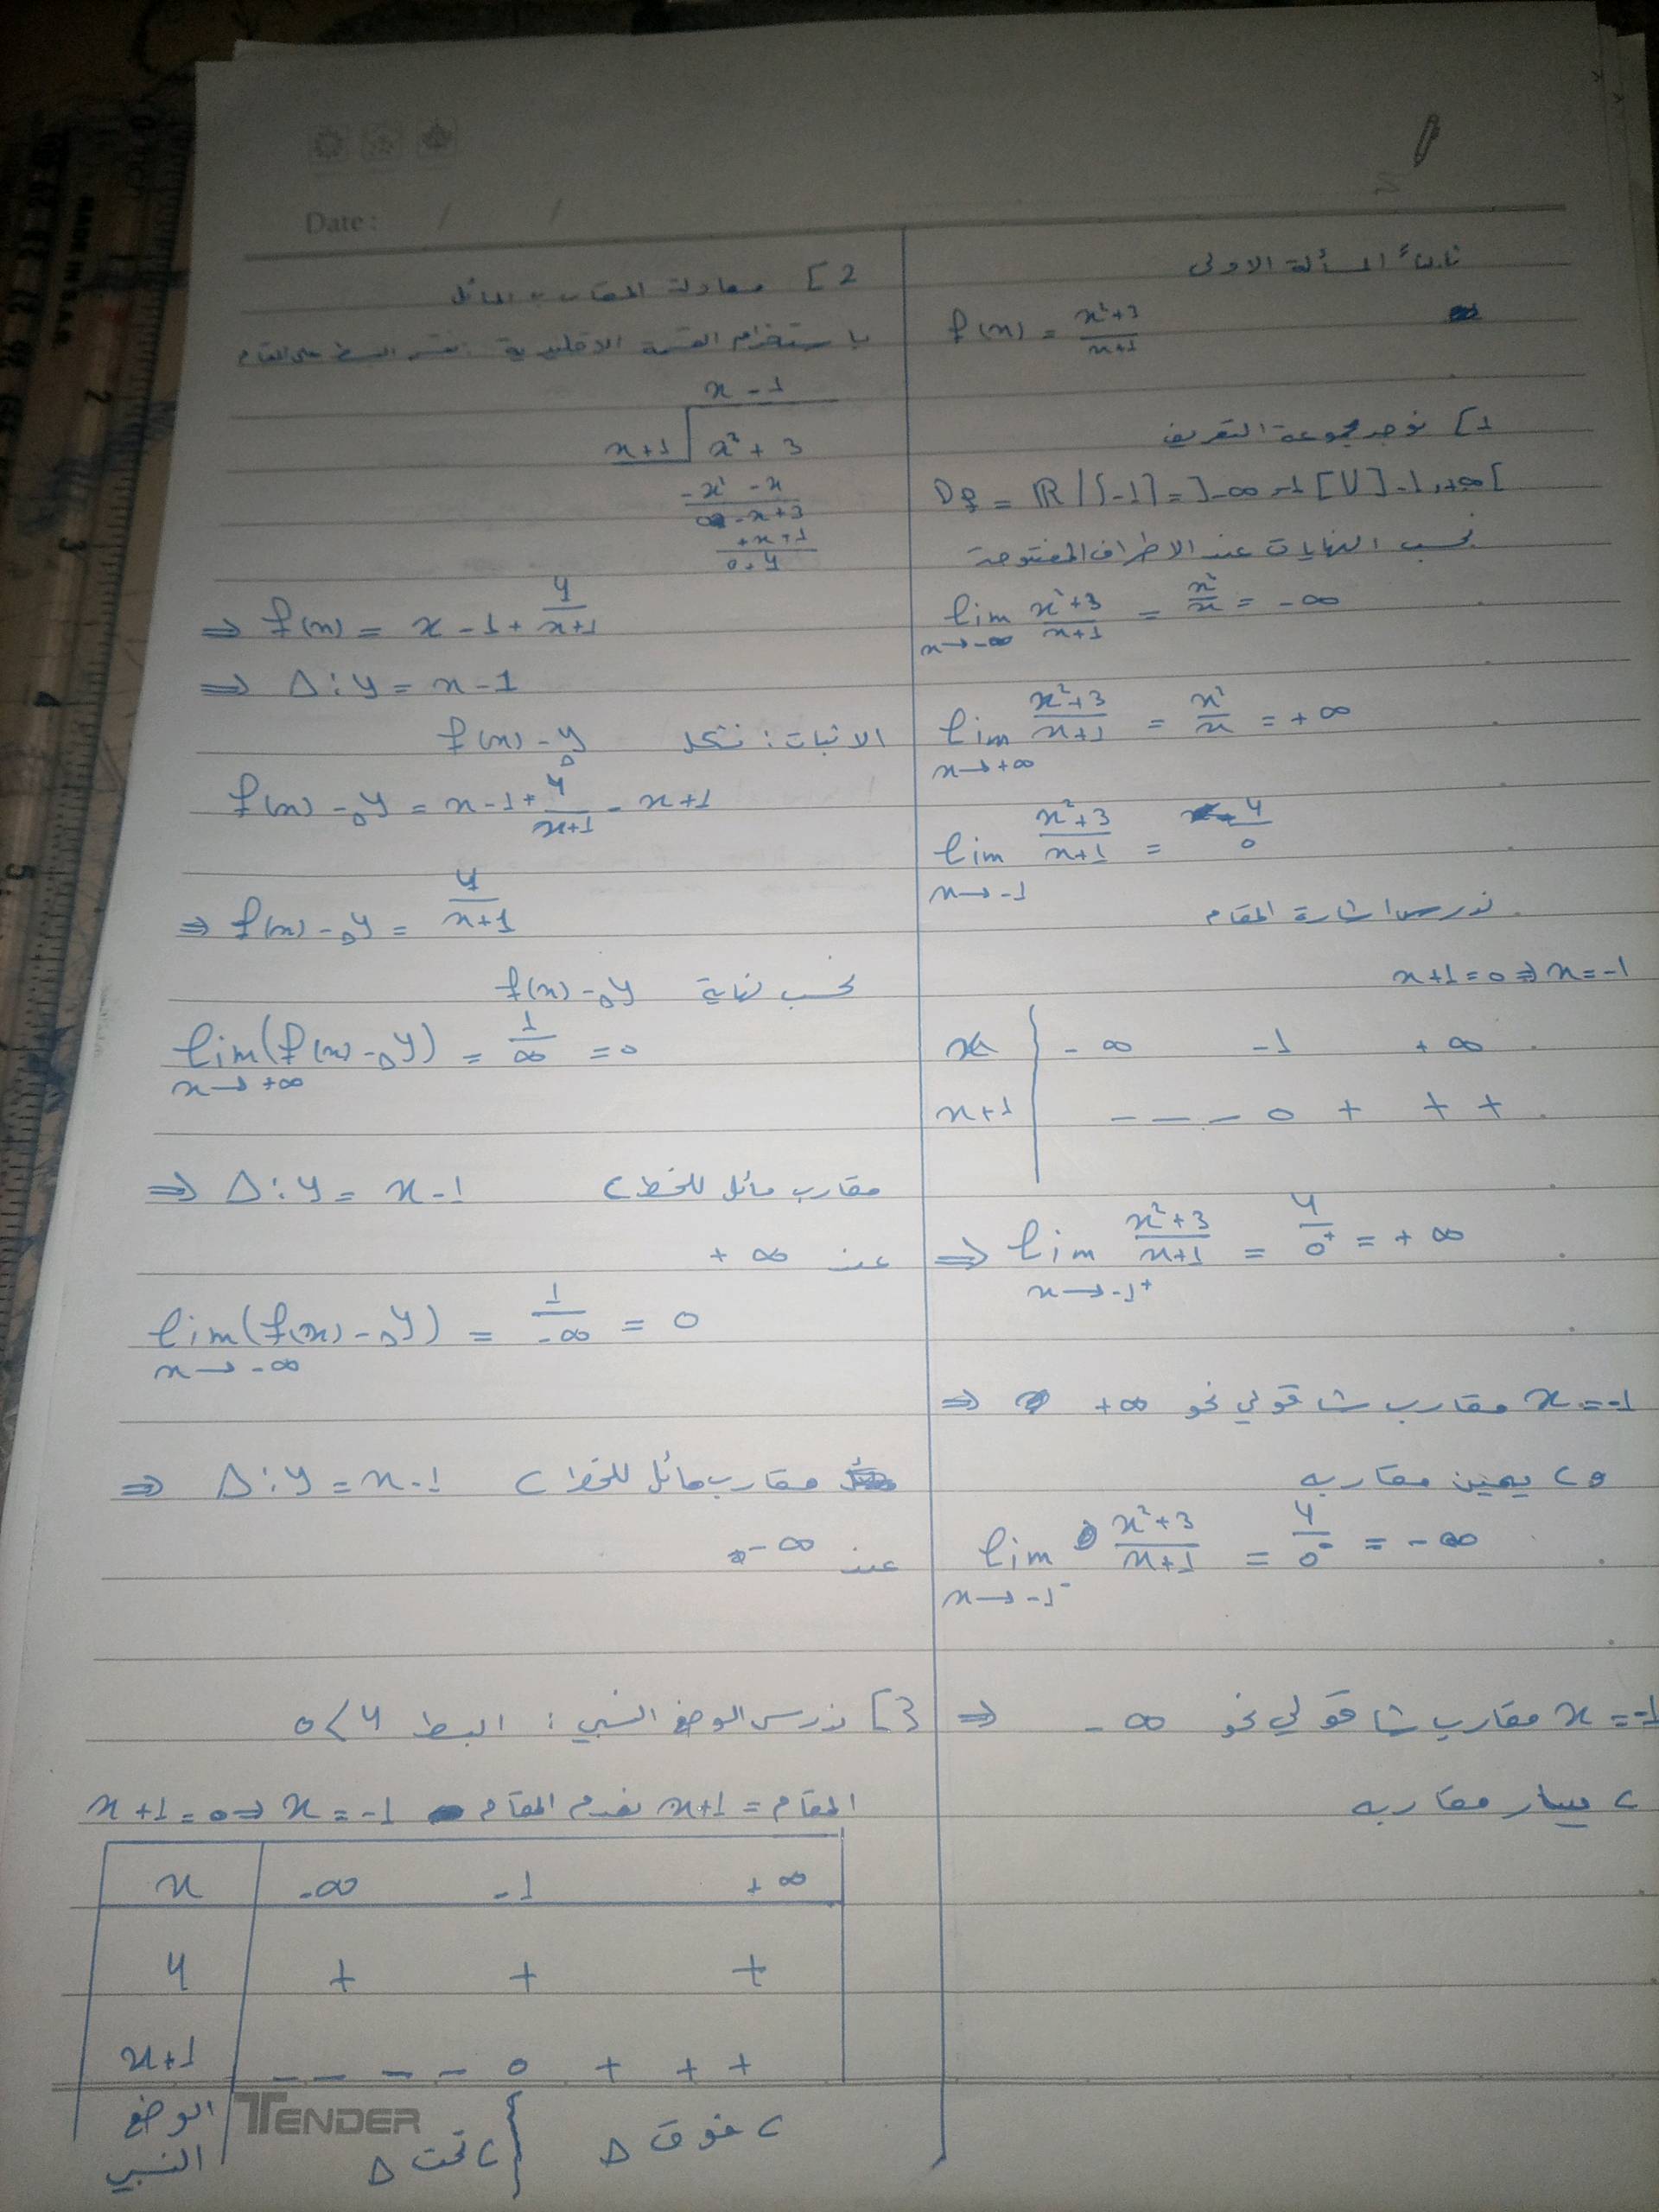 Date: / /
ثالثاً المسألة الاولى
f(x) = x²+3 / x+1
1] نوجد مجموعة التعريف
Df = ℝ \ {-1} = ]-∞,-1[ U ]-1,+∞[
نحسب النهايات عند الاطراف المفتوحة
lim x→-∞ x²+3 / x+1 = x²/x = -∞
lim x→+∞ x²+3 / x+1 = x²/x = +∞
lim x→-1 x²+3 / x+1 = 4/0
ندرس اشارة المقام
x+1=0 ⇒ x=-1
x -∞ -1 +∞
x+1 - - - 0 + + +
⇒ lim x→-1⁺ x²+3 / x+1 = 4/0⁺ = +∞
⇒ x=-1 مقارب شاقولي نحو +∞
و C يمين مقاربه
lim x→-1⁻ x²+3 / x+1 = 4/0⁻ = -∞
⇒ x=-1 مقارب شاقولي نحو -∞
C يسار مقاربه
2] معادلة المقارب المائل
باستخدام القسمة الاقليدية: نقسم البسط على المقام
x - 1
x+1 | x² + 3
-x² - x
0 - x + 3
+x + 1
0 + 4
⇒ f(x) = x - 1 + 4/x+1
⇒ Δ: y = x - 1
الاثبات: نشكل f(x) - yΔ
f(x) - yΔ = x - 1 + 4/x+1 - x + 1
⇒ f(x) - yΔ = 4/x+1
نحسب نهاية f(x) - yΔ
lim x→+∞ (f(x) - yΔ) = 1/∞ = 0
⇒ Δ: y = x - 1 مقارب مائل للخط C
عند +∞
lim x→-∞ (f(x) - yΔ) = 1/-∞ = 0
⇒ Δ: y = x - 1 مقارب مائل للخط C
عند -∞
3] ندرس الوضع النسبي: البسط 4>0
المقام = x+1 نعدم المقام x+1=0 ⇒ x=-1
x -∞ -1 +∞
4 + + +
x+1 - - - - 0 + + +
الوضع النسبي C تحت Δ C فوق Δ
TENDER